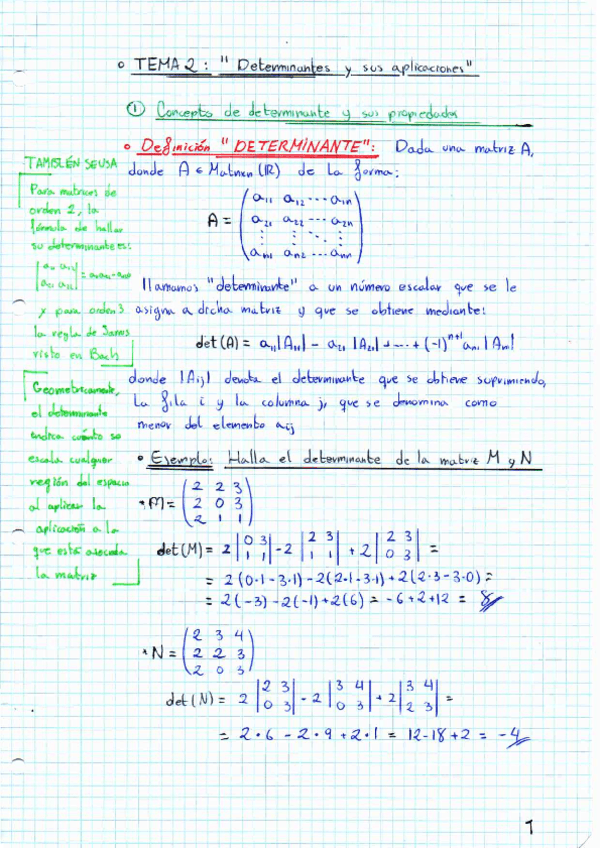 • TEMA 2: "Determinantes y sus aplicaciones"
① Concepto de determinante y sus propiedades
• Definición "DETERMINANTE": Dada una matriz A,
donde A ∈ Matnxn (IR) de la forma:
A = ( a11 a12 ... a1n
a21 a22 ... a2n
: : : :
an1 an2 ... ann )
llamamos "determinante" a un número escalar que se le
asigna a dicha matriz y que se obtiene mediante:
det(A) = a11|A11| - a21|A21| + ... + (-1)^n+1 an1 |An1|
donde |Aij| denota el determinante que se obtiene suprimiendo,
la fila i y la columna j, que se denomina como
menor del elemento aij
TAMBIÉN SE USA
Para matrices de
orden 2, la
fórmula de hallar
su determinante es:
y para orden 3
la regla de Sarrus
visto en Bach
Geometricamente,
el determinante
indica cuánto se
escala cualquier
región del espacio
al aplicar la
aplicación a la
que está asociada
la matriz
• Ejemplo: Halla el determinante de la matriz M y N
* M = ( 2 2 3
2 0 3
2 1 1 )
det(M) = 2 |0 3; 1 1| - 2 |2 3; 1 1| + 2 |2 3; 0 3| =
= 2(0·1-3·1) - 2(2·1-3·1) + 2(2·3-3·0) =
= 2(-3) - 2(-1) + 2(6) = -6+2+12 = 8
* N = ( 2 3 4
2 2 3
2 0 3 )
det(N) = 2 |2 3; 0 3| - 2 |3 4; 0 3| + 2 |3 4; 2 3| =
= 2·6 - 2·9 + 2·1 = 12-18+2 = -4
1